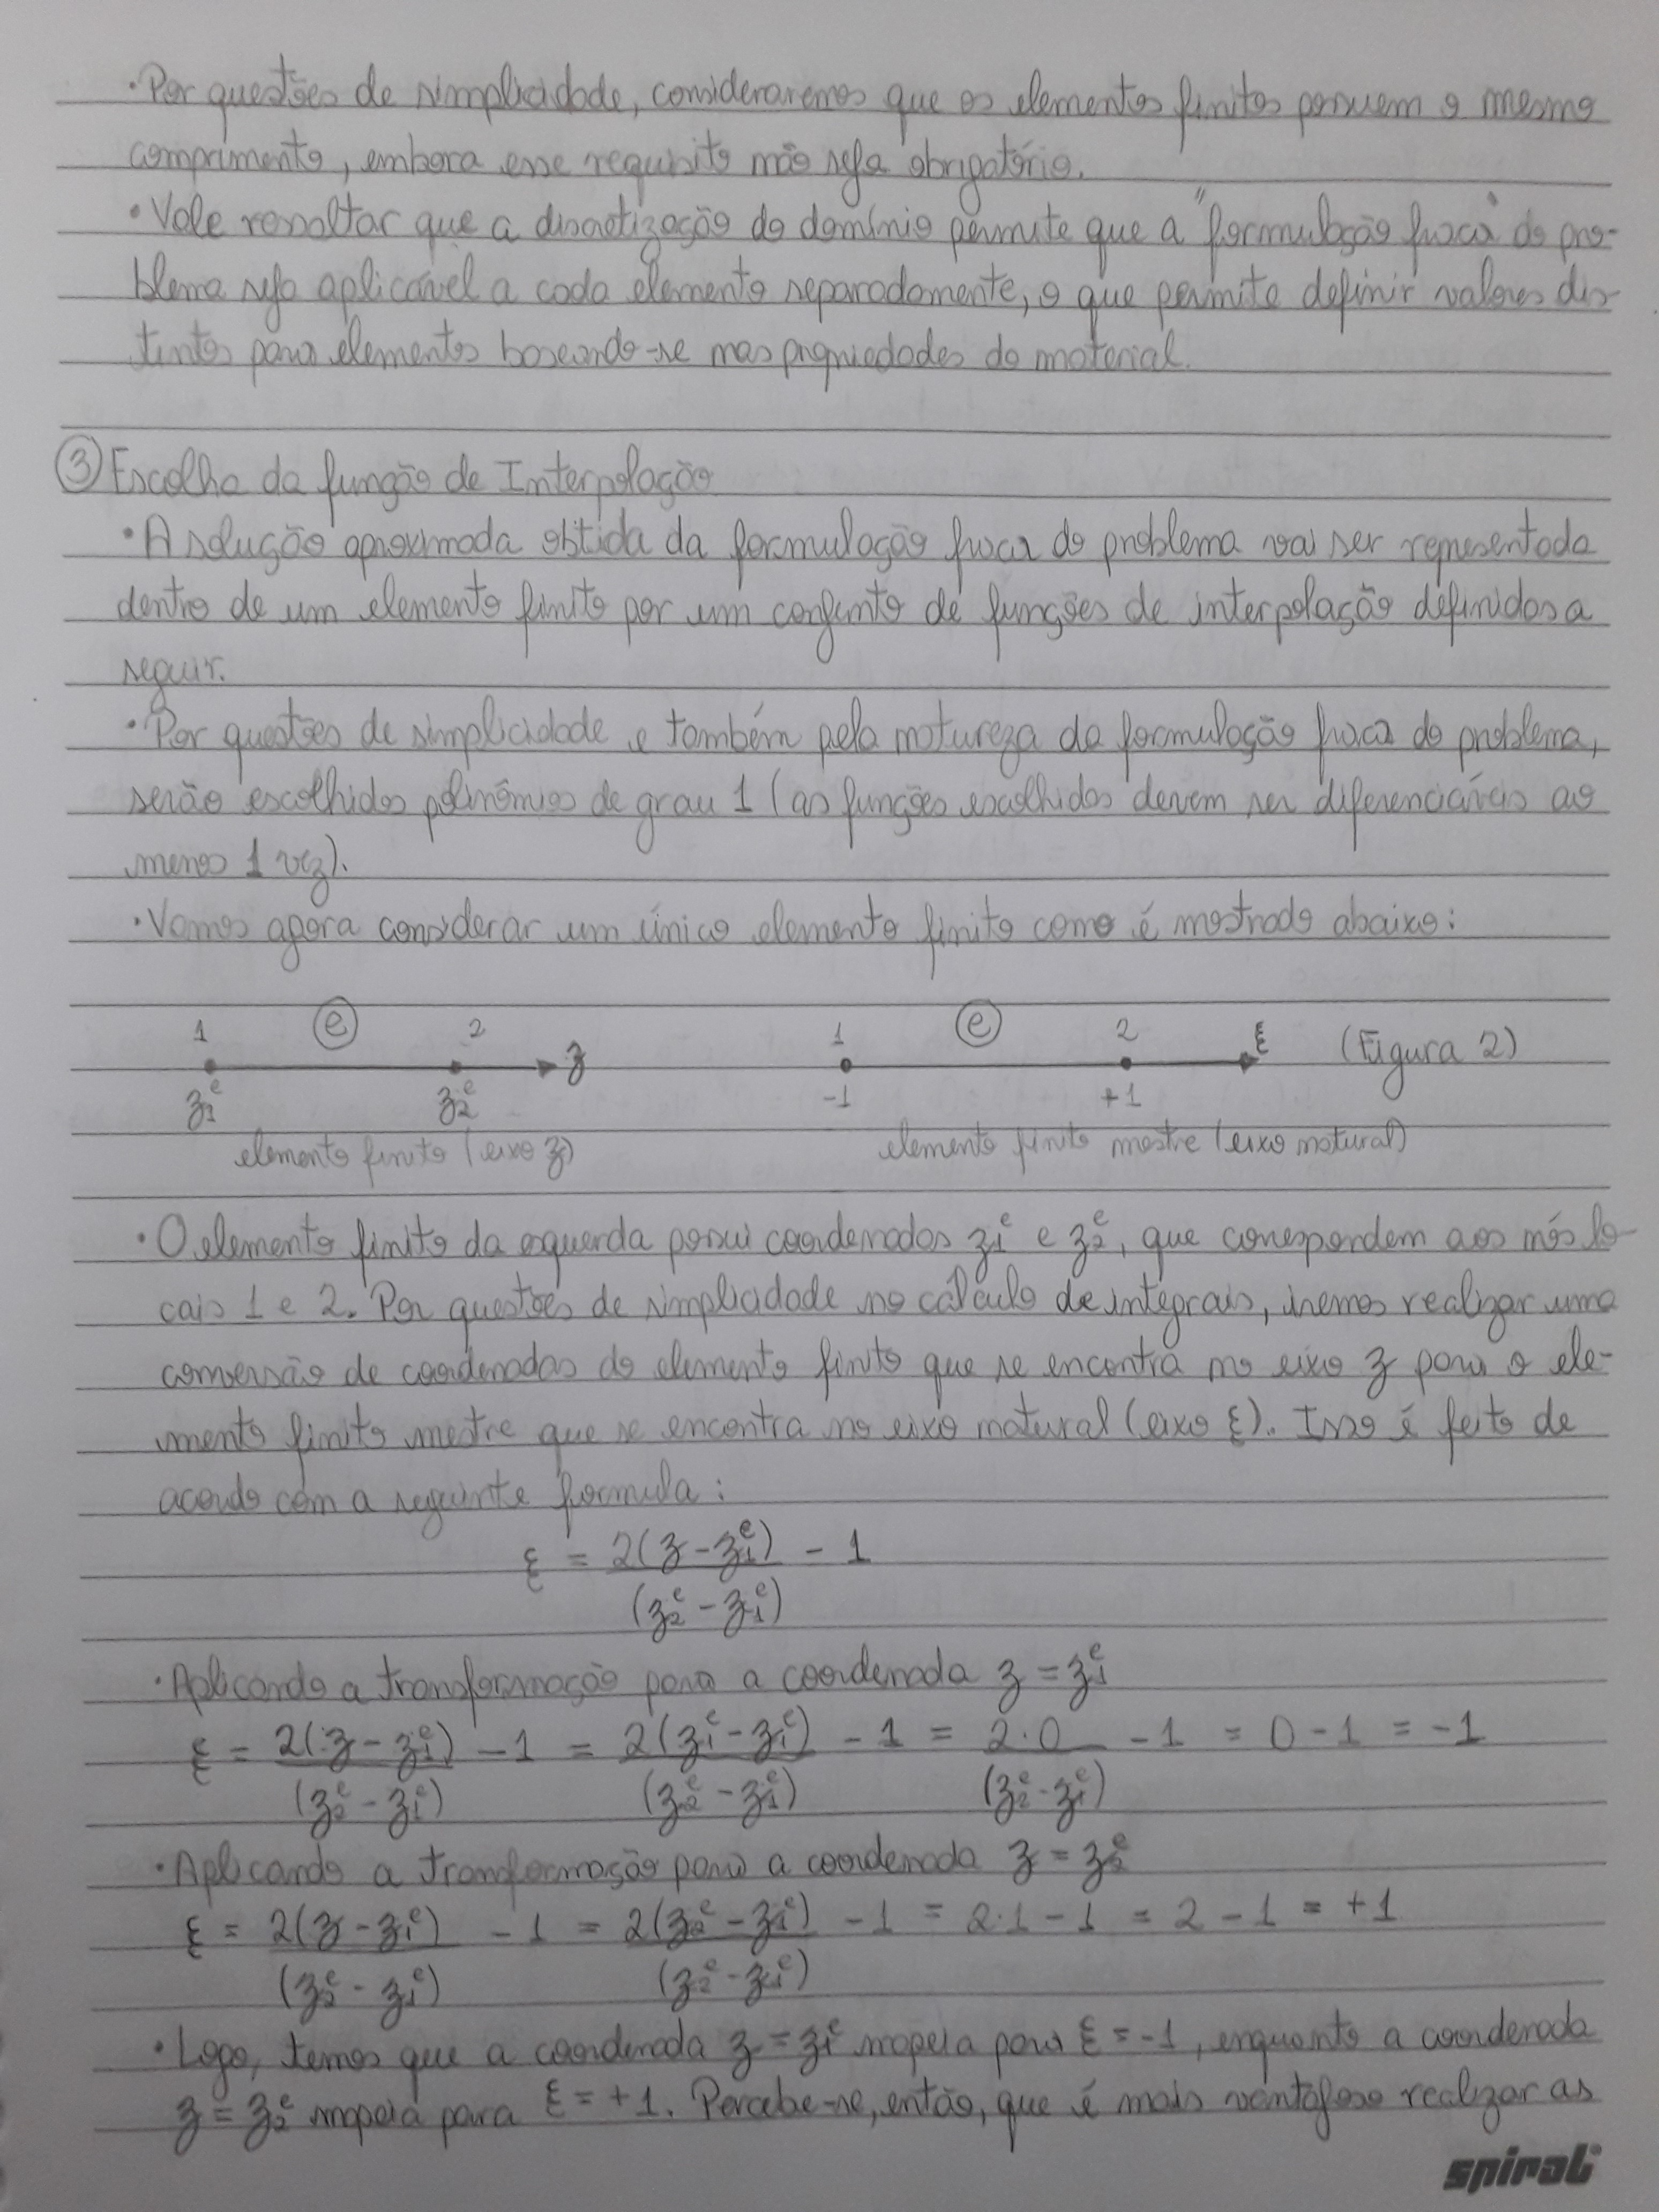 • Por questões de simplicidade, consideraremos que os elementos finitos possuem o mesmo
comprimento, embora esse requisito não seja obrigatório.
• Vale ressaltar que a discretização do domínio permite que a "formulação fraca" do pro-
blema seja aplicável a cada elemento separadamente, o que permite definir valores dis-
tintos para elementos baseando-se nas propriedades do material.
③ Escolha da função de Interpolação
• A solução aproximada obtida da formulação fraca do problema vai ser representada
dentro de um elemento finito por um conjunto de funções de interpolação definidas a
seguir.
• Por questões de simplicidade e também pela natureza da formulação fraca do problema,
serão escolhidos polinômios de grau 1 (as funções escolhidas devem ser diferenciáveis ao
menos 1 vez).
• Vamos agora considerar um único elemento finito como é mostrado abaixo:
1 ⓔ 2 z 1 ⓔ 2 ξ (Figura 2)
z₁ᵉ z₂ᵉ -1 +1
elemento finito (eixo z) elemento finito mestre (eixo natural)
• O elemento finito da esquerda possui coordenadas z₁ᵉ e z₂ᵉ, que correspondem aos nós lo-
cais 1 e 2. Por questões de simplicidade no cálculo de integrais, iremos realizar uma
conversão de coordenadas do elemento finito que se encontra no eixo z para o ele-
mento finito mestre que se encontra no eixo natural (eixo ξ). Isso é feito de
acordo com a seguinte formula:
ξ = 2(z - z₁ᵉ) - 1
(z₂ᵉ - z₁ᵉ)
• Aplicando a transformação para a coordenada z = z₁ᵉ
ξ = 2(z - z₁ᵉ) - 1 = 2(z₁ᵉ - z₁ᵉ) - 1 = 2·0 - 1 = 0 - 1 = -1
(z₂ᵉ - z₁ᵉ) (z₂ᵉ - z₁ᵉ) (z₂ᵉ - z₁ᵉ)
• Aplicando a transformação para a coordenada z = z₂ᵉ
ξ = 2(z - z₁ᵉ) - 1 = 2(z₂ᵉ - z₁ᵉ) - 1 = 2·1 - 1 = 2 - 1 = +1
(z₂ᵉ - z₁ᵉ) (z₂ᵉ - z₁ᵉ)
• Logo, temos que a coordenada z = z₁ᵉ mapeia para ξ = -1, enquanto a coordenada
z = z₂ᵉ mapeia para ξ = +1. Percebe-se, então, que é mais vantajoso realizar as
spiral®